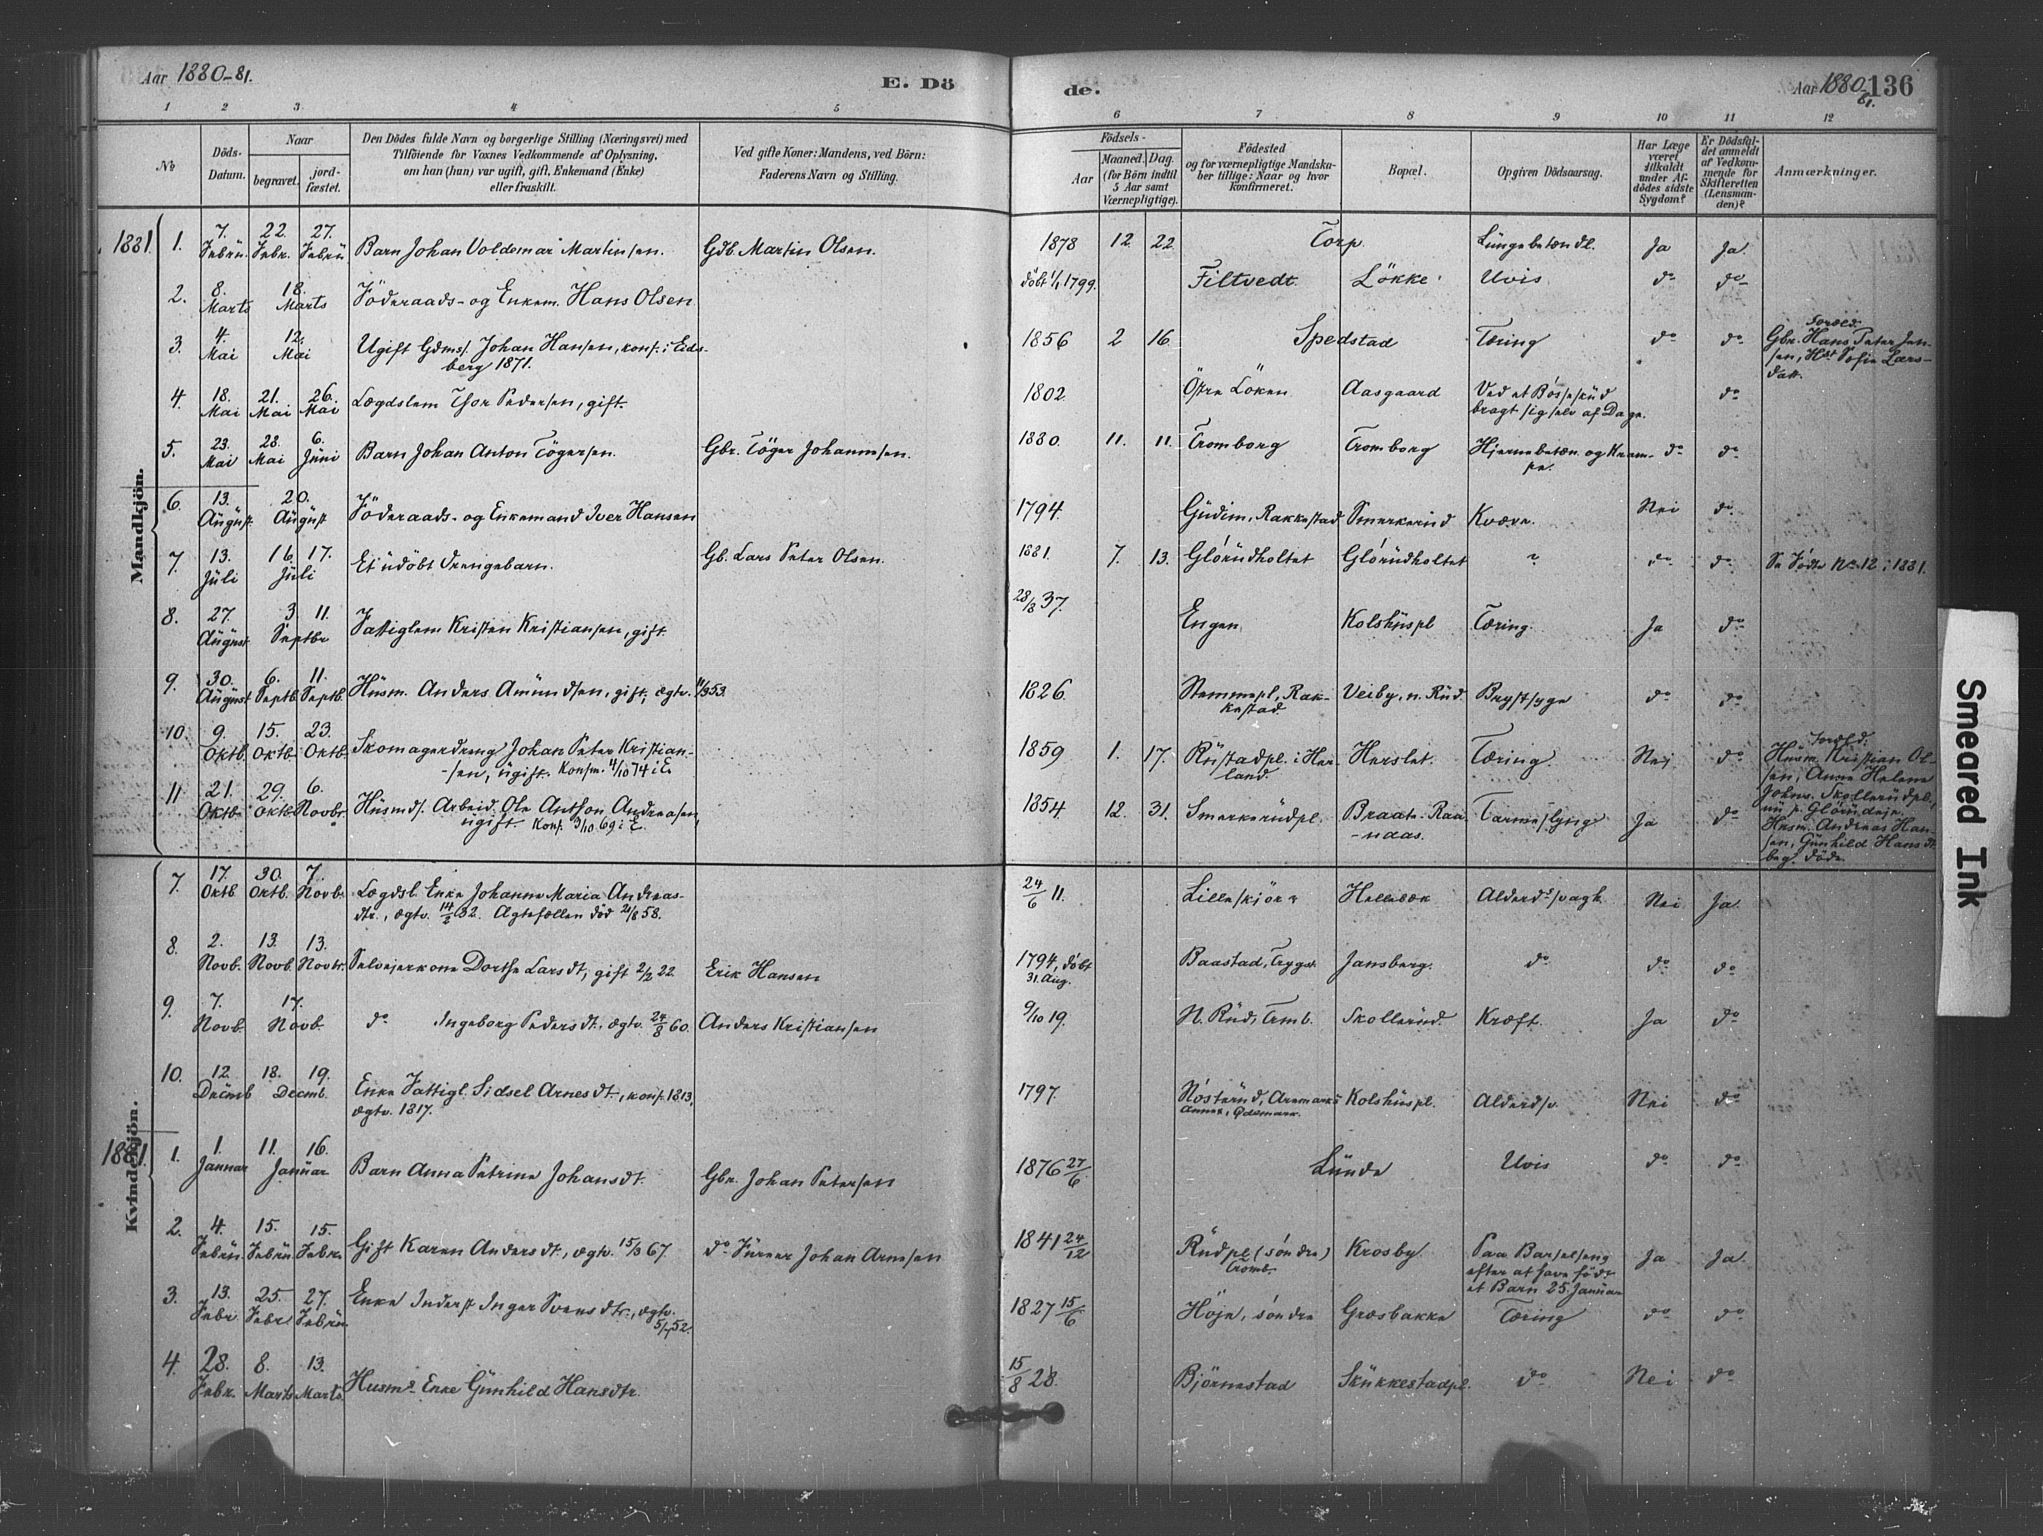 Aar 1880-81.
E. Dö
de.
Aar 1880/81. 136
1 2 3. 4 5 6 7 8 9 10 11 12
No
Döds-Datum.
Naar
begravet.
jord-fæstet.
Den Dödes fulde Navn og borgerlige Stilling (Næringsvei) med
Tilföiende for Voxnes Vedkommende af Oplysning,
om han (hun) var ugift, gift, Enkemand (Enke)
eller fraskilt.
Ved gifte Koner: Mandens, ved Börn:
Faderens Navn og Stilling.
Födsels-
Aar
Maaned. Dag.
(for Börn indtil
5 Aar samt
Værnepligtige).
Födested
og for værnepligtige Mandska-
ber tillige: Naar og hvor
konfirmeret.
Bopæl.
Opgiven Dödsaarsag.
Har Læge
været
tilkaldt
under Af-
dödes sidste
Sygdom?
Er Dödsfal-
det anmeldt
af Vedkom-
mende for
Skifteretten
(Lensman-
den)?
Anmærkninger.
Mandkjön.
1881. 1. 7. Febru. 22. Febr. 27. Febru Barn Johan Voldemar Martinsen. Gdb. Martin Olsen. 1878 12 22 Torp. Lungebetændl. Ja Ja.
2. 8. Marts 18. Marts Föderaads- og Enkem. Hans Olsen döbt 1/1 1799. Filtvedt. Lökke Uvis do do
3. 4. Mai 12. Mai Ugift Gdms. Johan Hansen, konf. i Eids-
berg 1871. 1856 2 16 Spedstad Tæring do do Foræld.
Gbr. Hans Peter Jen-
sen, Hst Sofie Lars-
datt.
4. 18. Mai 21. Mai 26. Mai Lægdslem Thor Pedersen, gift. 1802. Östre Löken Aasgaard Ved et Bösseskud
bragt sig selv af Dage. do
5. 23. Mai 28. Mai 6. Juni Barn Johan Anton Tögersen. Gbr. Töger Johannesen. 1880. 11. 11. Tromborg Tromborg Hjernebetæn. og Kram-
pe. do do
6. 13. August 20. August Föderaads- og Enkemand Iver Hansen 1794. Gudim, Rakkestad Smerkerud Kværk. Nei do
7. 13. Juli 16. 17. Juli Et udöbt Drengebarn. Gb. Lars Peter Olsen. 1881. 7. 13. Glórudholtet Glórudholtet ? do do Se Födte No 12 i 1881.
8. 27. August 3 11. Septbr Fattiglem Kristen Kristiansen, gift 28/8 37. Engen Kolshuspl Tæring. Ja do
9. 30. August 6. Septb. 11. Septb. Husm. Anders Amundsen, gift, ægtv. 11/3 53. 1826. Stemmepl, Rak-
kestad Veiby, n. Rud. Brystsyge do do
10. 9. Oktb. 15. Oktb. 23. Oktb. Skomagerdreng Johan Peter Kristian-
-sen, ugift. Konfm. 4/10 74 i E. 1859 1. 17. Rustadpl. i Her-
land. Herslet. Tæring. Nei do Foræld.
Husm. Kristian Ol-
sen, Anne Helene
Johns. Skollerudpl.,
nu p. Glórudeje.
11 21. Oktb. 29. Oktb. 6. Novbr. Husmds. Arbeid. Ole Anthon Andreasen,
ugift. Konf. 3/10 69 i E. 1854 12. 31. Smerkerudpl. Braatn. Raa-
-naas. Tarmeslyng Ja do Husm. Andreas Han-
sen, Gunhild Hansdt.
beg. döde.
Kvindekjön.
7. 17. Oktb. 30. Oktb. 7. Novbr Lægdsl. Enke Johanne Maria Andreas-
dtr., ægtv. 14/8 32. Ægtefællen död 21/8 58. 24/6 11. Lilleskjör Hellebæk Alderdssvagh. Nei Ja.
8. 2. Novb. 13. Novb. 13. Novbr. Selvejerkone Dorthe Larsdt, gift 2/2 22 Erik Hansen 1794, döbt
31. Aug. Baastad, Trygst. Jansberg. do do do
9. 7. Novb. 17. Novb. do Ingeborg Pedersdt. ægtv. 24/8 60. Anders Kristiansen 9/10 19. N. Rud, Tromb. Skollerud. Kræft. Ja do
10. 12. Decmb 18. 19. Decmb. Enke Fattigl. Sidsel Arnesdt., konf. 1813,
ægtv. 1817. 1797. Nósterud, Aremarks
Annex, Ødemark. Kolshuspl. Alderdsv. Nei do
1881. 1. 1 Januar 11. 16. Januar Barn Anna Petrine Johansdt. Gbr. Johan Petersen 1876 27/6 Lunde Uvis do do
2. 4. Febru. 15. Febru 15. Febru Gift Karen Andersdt., ægtv. 15/3 67. do Furer Johan Arnesen 1841 24/12 Rudpl. (sóndre)
Tromb. Krosby. Paa Barselseng
efter at have född
et Barn 25. Januar Ja Ja.
3. 13. Febr. 25. Febr. 27. Febru Enke Inderst Inger Svensdtr., ægtv.
5/7 52. 1827 15/6 Höje, sóndre Græsbakke Tæring do do
4. 28. Febr. 8. Marts 13. Marts. Husms Enke Gunhild Hansdtr. 15/8 28. Björnestad Skukkestadpl. do Nei do
Smeared Ink